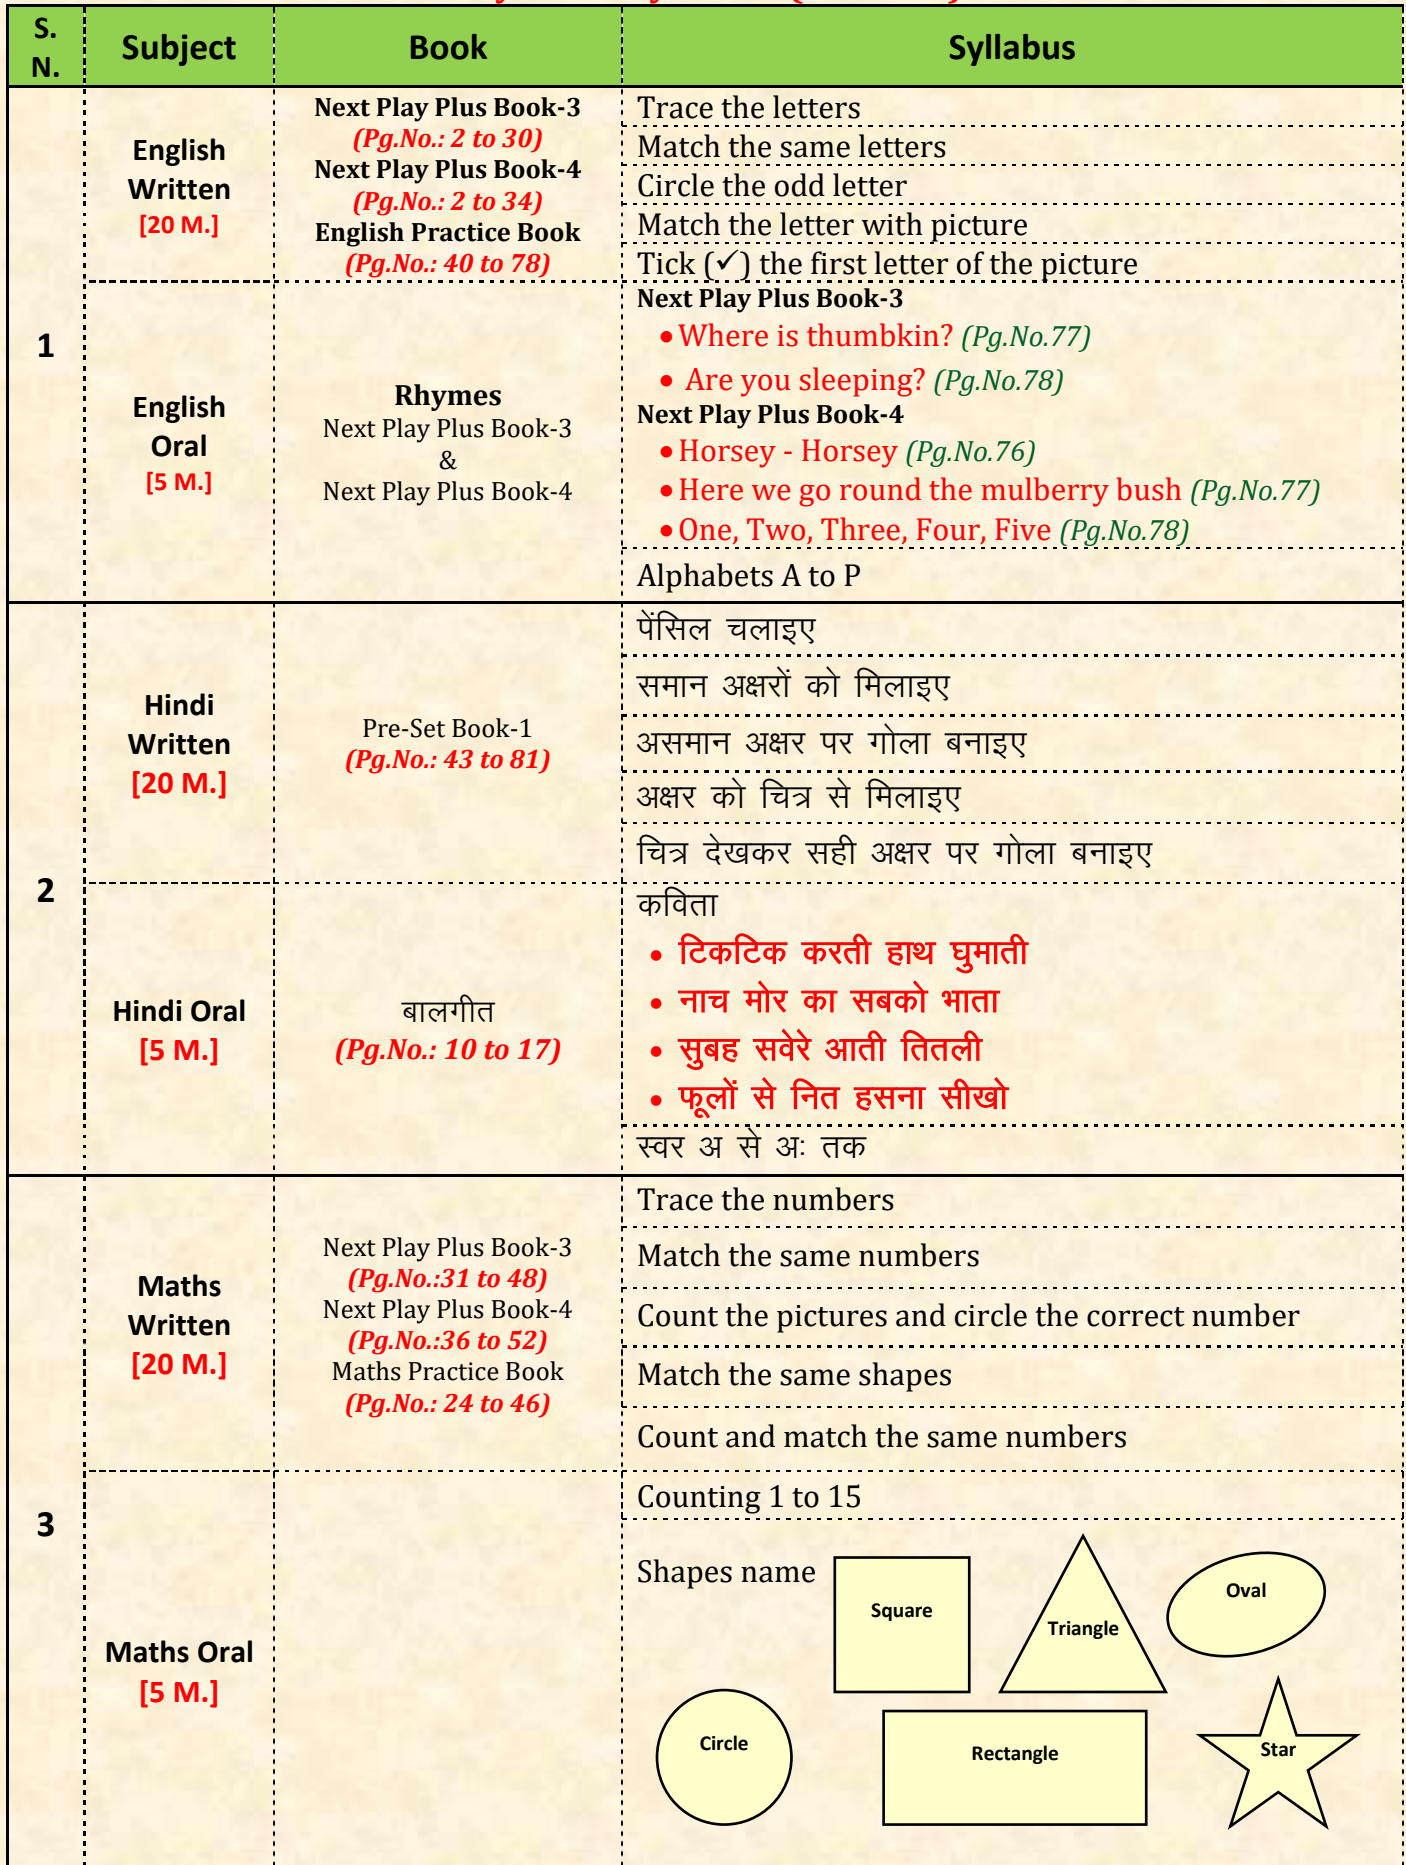 S.
N.
Subject
Book
Syllabus
1
English
Written
[20 M.]
Next Play Plus Book-3
(Pg.No.: 2 to 30)
Next Play Plus Book-4
(Pg.No.: 2 to 34)
English Practice Book
(Pg.No.: 40 to 78)
Trace the letters
Match the same letters
Circle the odd letter
Match the letter with picture
Tick (✓) the first letter of the picture
English
Oral
[5 M.]
Rhymes
Next Play Plus Book-3
&
Next Play Plus Book-4
Next Play Plus Book-3
• Where is thumbkin? (Pg.No.77)
• Are you sleeping? (Pg.No.78)
Next Play Plus Book-4
• Horsey - Horsey (Pg.No.76)
• Here we go round the mulberry bush (Pg.No.77)
• One, Two, Three, Four, Five (Pg.No.78)
Alphabets A to P
2
Hindi
Written
[20 M.]
Pre-Set Book-1
(Pg.No.: 43 to 81)
पेंसिल चलाइए
समान अक्षरों को मिलाइए
असमान अक्षर पर गोला बनाइए
अक्षर को चित्र से मिलाइए
चित्र देखकर सही अक्षर पर गोला बनाइए
Hindi Oral
[5 M.]
बालगीत
(Pg.No.: 10 to 17)
कविता
• टिकटिक करती हाथ घुमाती
• नाच मोर का सबको भाता
• सुबह सवेरे आती तितली
• फूलों से नित हसना सीखो
स्वर अ से अः तक
3
Maths
Written
[20 M.]
Next Play Plus Book-3
(Pg.No.:31 to 48)
Next Play Plus Book-4
(Pg.No.:36 to 52)
Maths Practice Book
(Pg.No.: 24 to 46)
Trace the numbers
Match the same numbers
Count the pictures and circle the correct number
Match the same shapes
Count and match the same numbers
Maths Oral
[5 M.]
Counting 1 to 15
Shapes name
Square
Triangle
Oval
Circle
Rectangle
Star